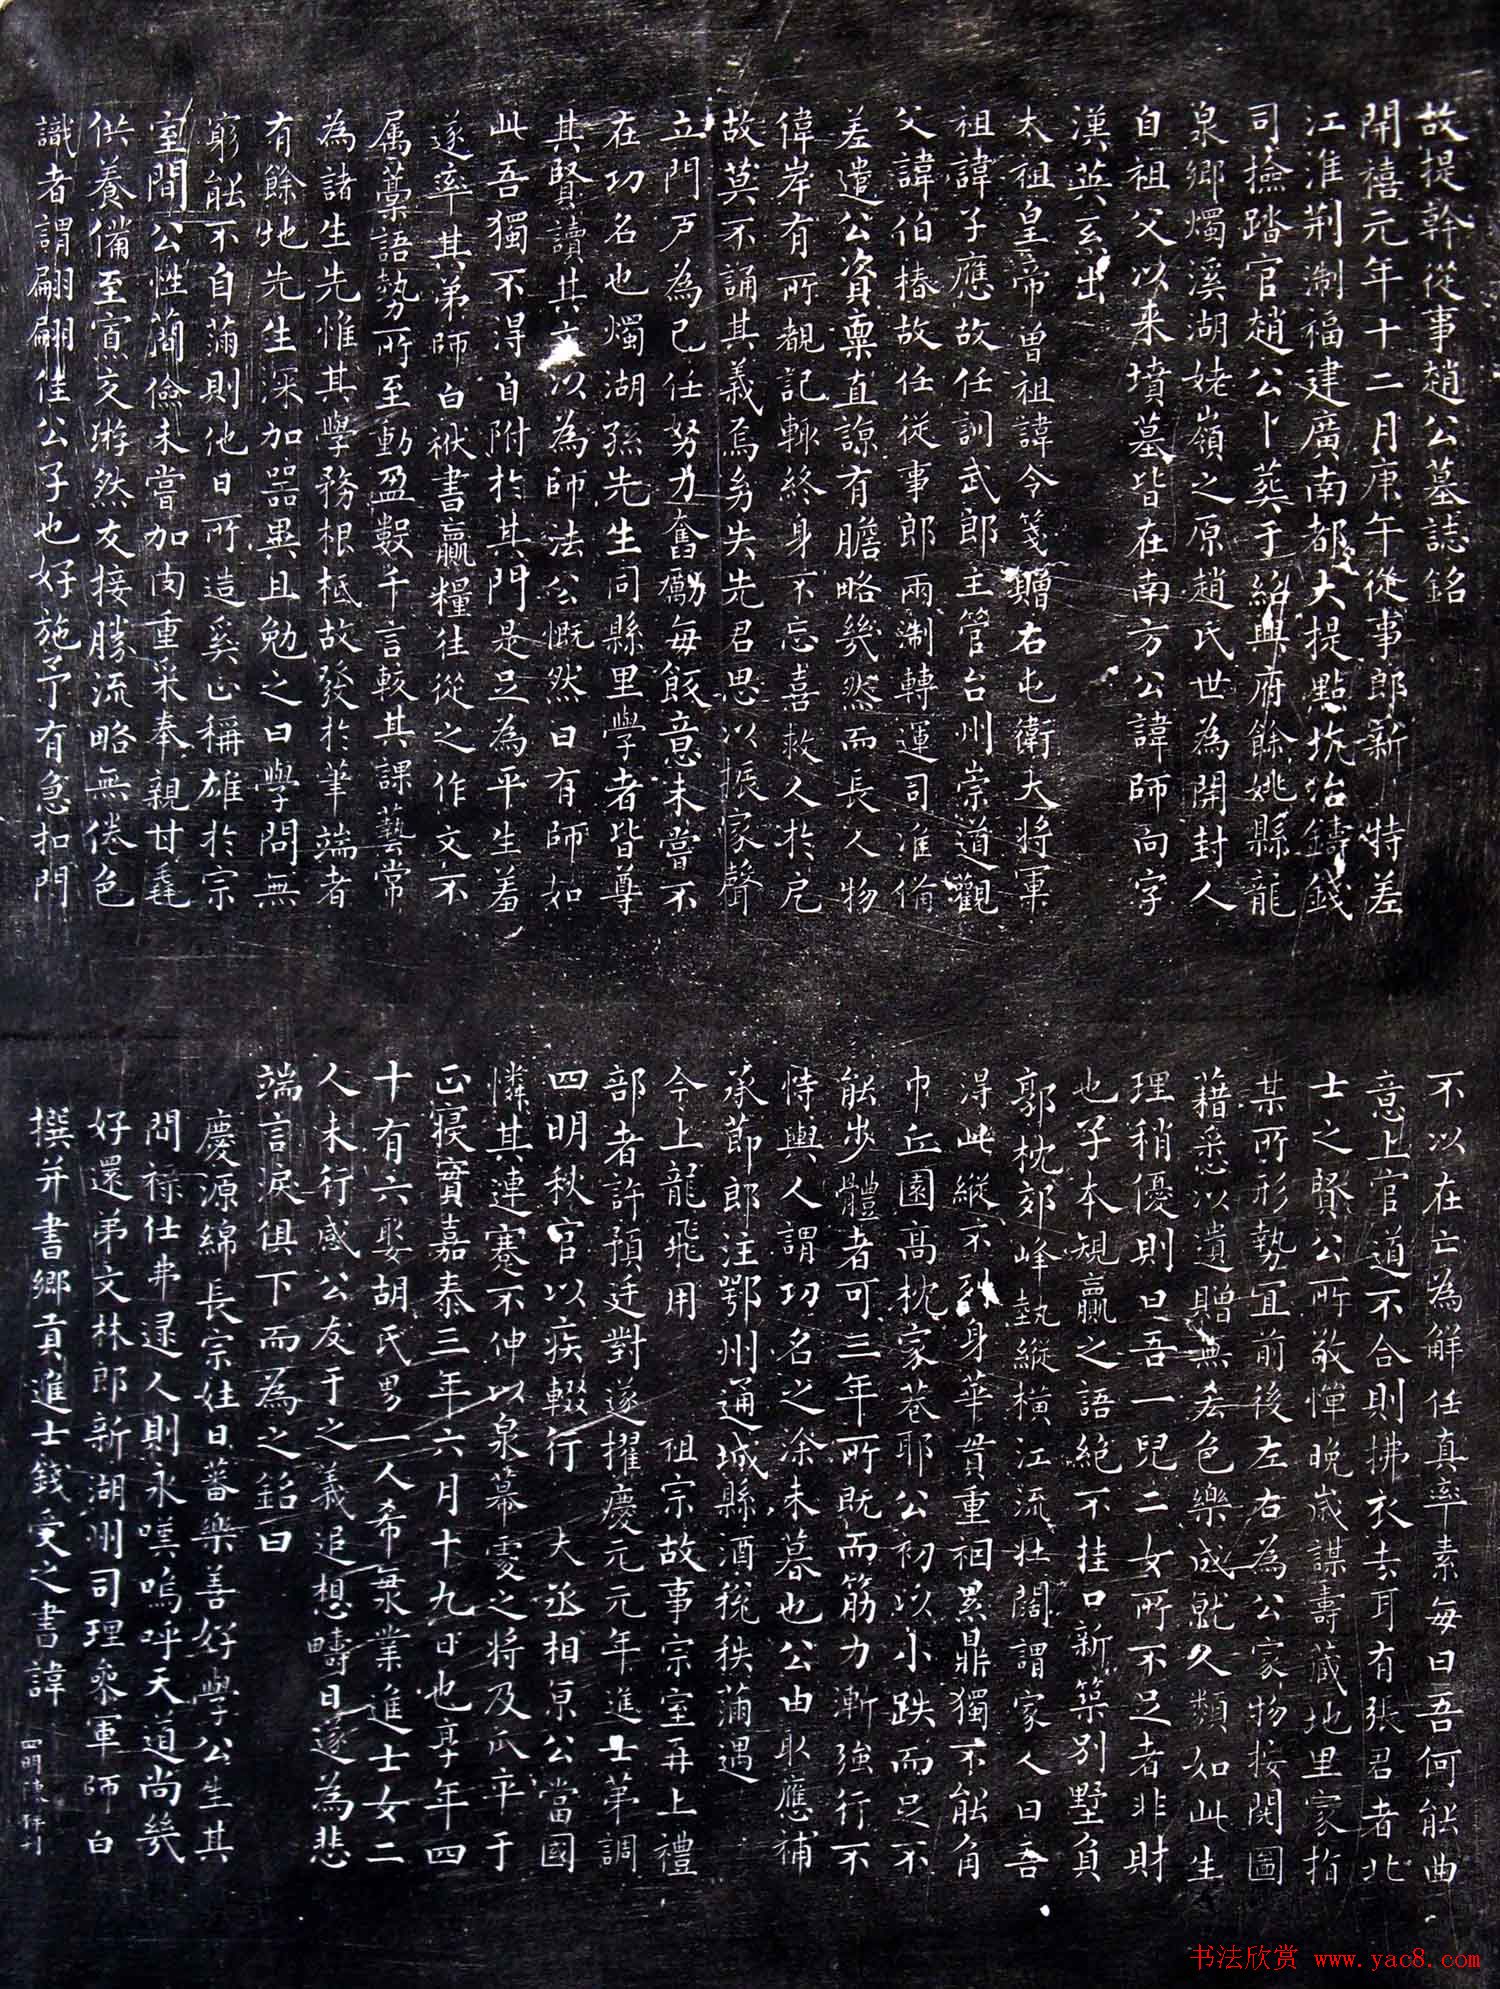 故提幹從事趙公墓誌銘
開禧元年十二月庚午從事郎新特差
江淮荆淛福建廣南都大提點坑冶鑄錢
司撿踏官趙公卜葬于紹興府餘姚縣龍
泉鄉燭溪湖姥嶺之原趙氏世為開封人
自祖父以来墳墓皆在南方公諱師向字
漢英系出
太祖皇帝曾祖諱令箋贈右屯衛大將軍
祖諱子應故任訓武郎主管台州崇道觀
父諱伯椿故任從事郎兩淛轉運司准俻
差遣公資稟直諒有膽略嶷然而長人物
偉岸有所覩記輙終身不忘喜救人於厄
故莫不誦其義焉匆失先君思以振家聲
立門户為己任努力奮勵每飯意未嘗不
在功名也燭湖孫先生同縣里學者皆尊
其賢讀其文以為師法公慨然曰有師如
此吾獨不得自附於其門是足為平生羞
遂率其弟師白袱書贏糧往從之作文不
属藁語勢所至動盈數千言較其課藝常
為諸生先惟其學務根柢故發於筆端者
有餘地先生深加器異且勉之曰學問無
窮能不自滿則他日所造奚止稱雄於宗
室間公性簡儉未嘗加肉重采奉親甘毳
供養備至賔交游然友接勝流略無倦色
識者謂翩翩佳公子也好施予有急扣門
不以在亡為解任真率素每日吾何能曲
意上官道不合則拂衣去耳有張君者北
士之賢公所敬憚晚歲謀壽藏地里家指
某所形勢宜前後左右為公家物按閱圖
藉悉以遺贈無吝色樂成就久類如此生
理稍優則曰吾一兒二女所不足者非財
也子本規贏之語絕不挂口新築別墅負
郭枕郊峰埶縱橫江流壮闊謂家人曰吾
得此縱不列身華貫重裀累鼎獨不能角
巾丘園高枕家巷耶公初以小跌而足不
能步體者可三年所既而筋力漸強行不
恃輿人謂功名之涂未暮也公由取應補
承節郎注鄂州通城縣酒稅秩滿遇
今上龍飛用祖宗故事宗室再上禮
部者許預廷對遂擢慶元元年進士第調
四明秋官以疾輟行大丞相京公當國
憐其連蹇不伸以泉幕處之將及瓜卒于
正寢實嘉泰三年六月十九日也享年四
十有六娶胡氏男一人希㲼業進士女二
人未行感公友于之義追想疇日遂為悲
端言淚俱下而為之銘曰
慶源綿長宗姓日蕃樂善好學公生其
間祿仕弗逮人則永嘆嗚呼天道尚幾
好還弟文林郎新湖州司理叅軍師白
撰并書鄉貢進士錢受之書諱
四明陳刊
書法欣赏 www.yac8.com